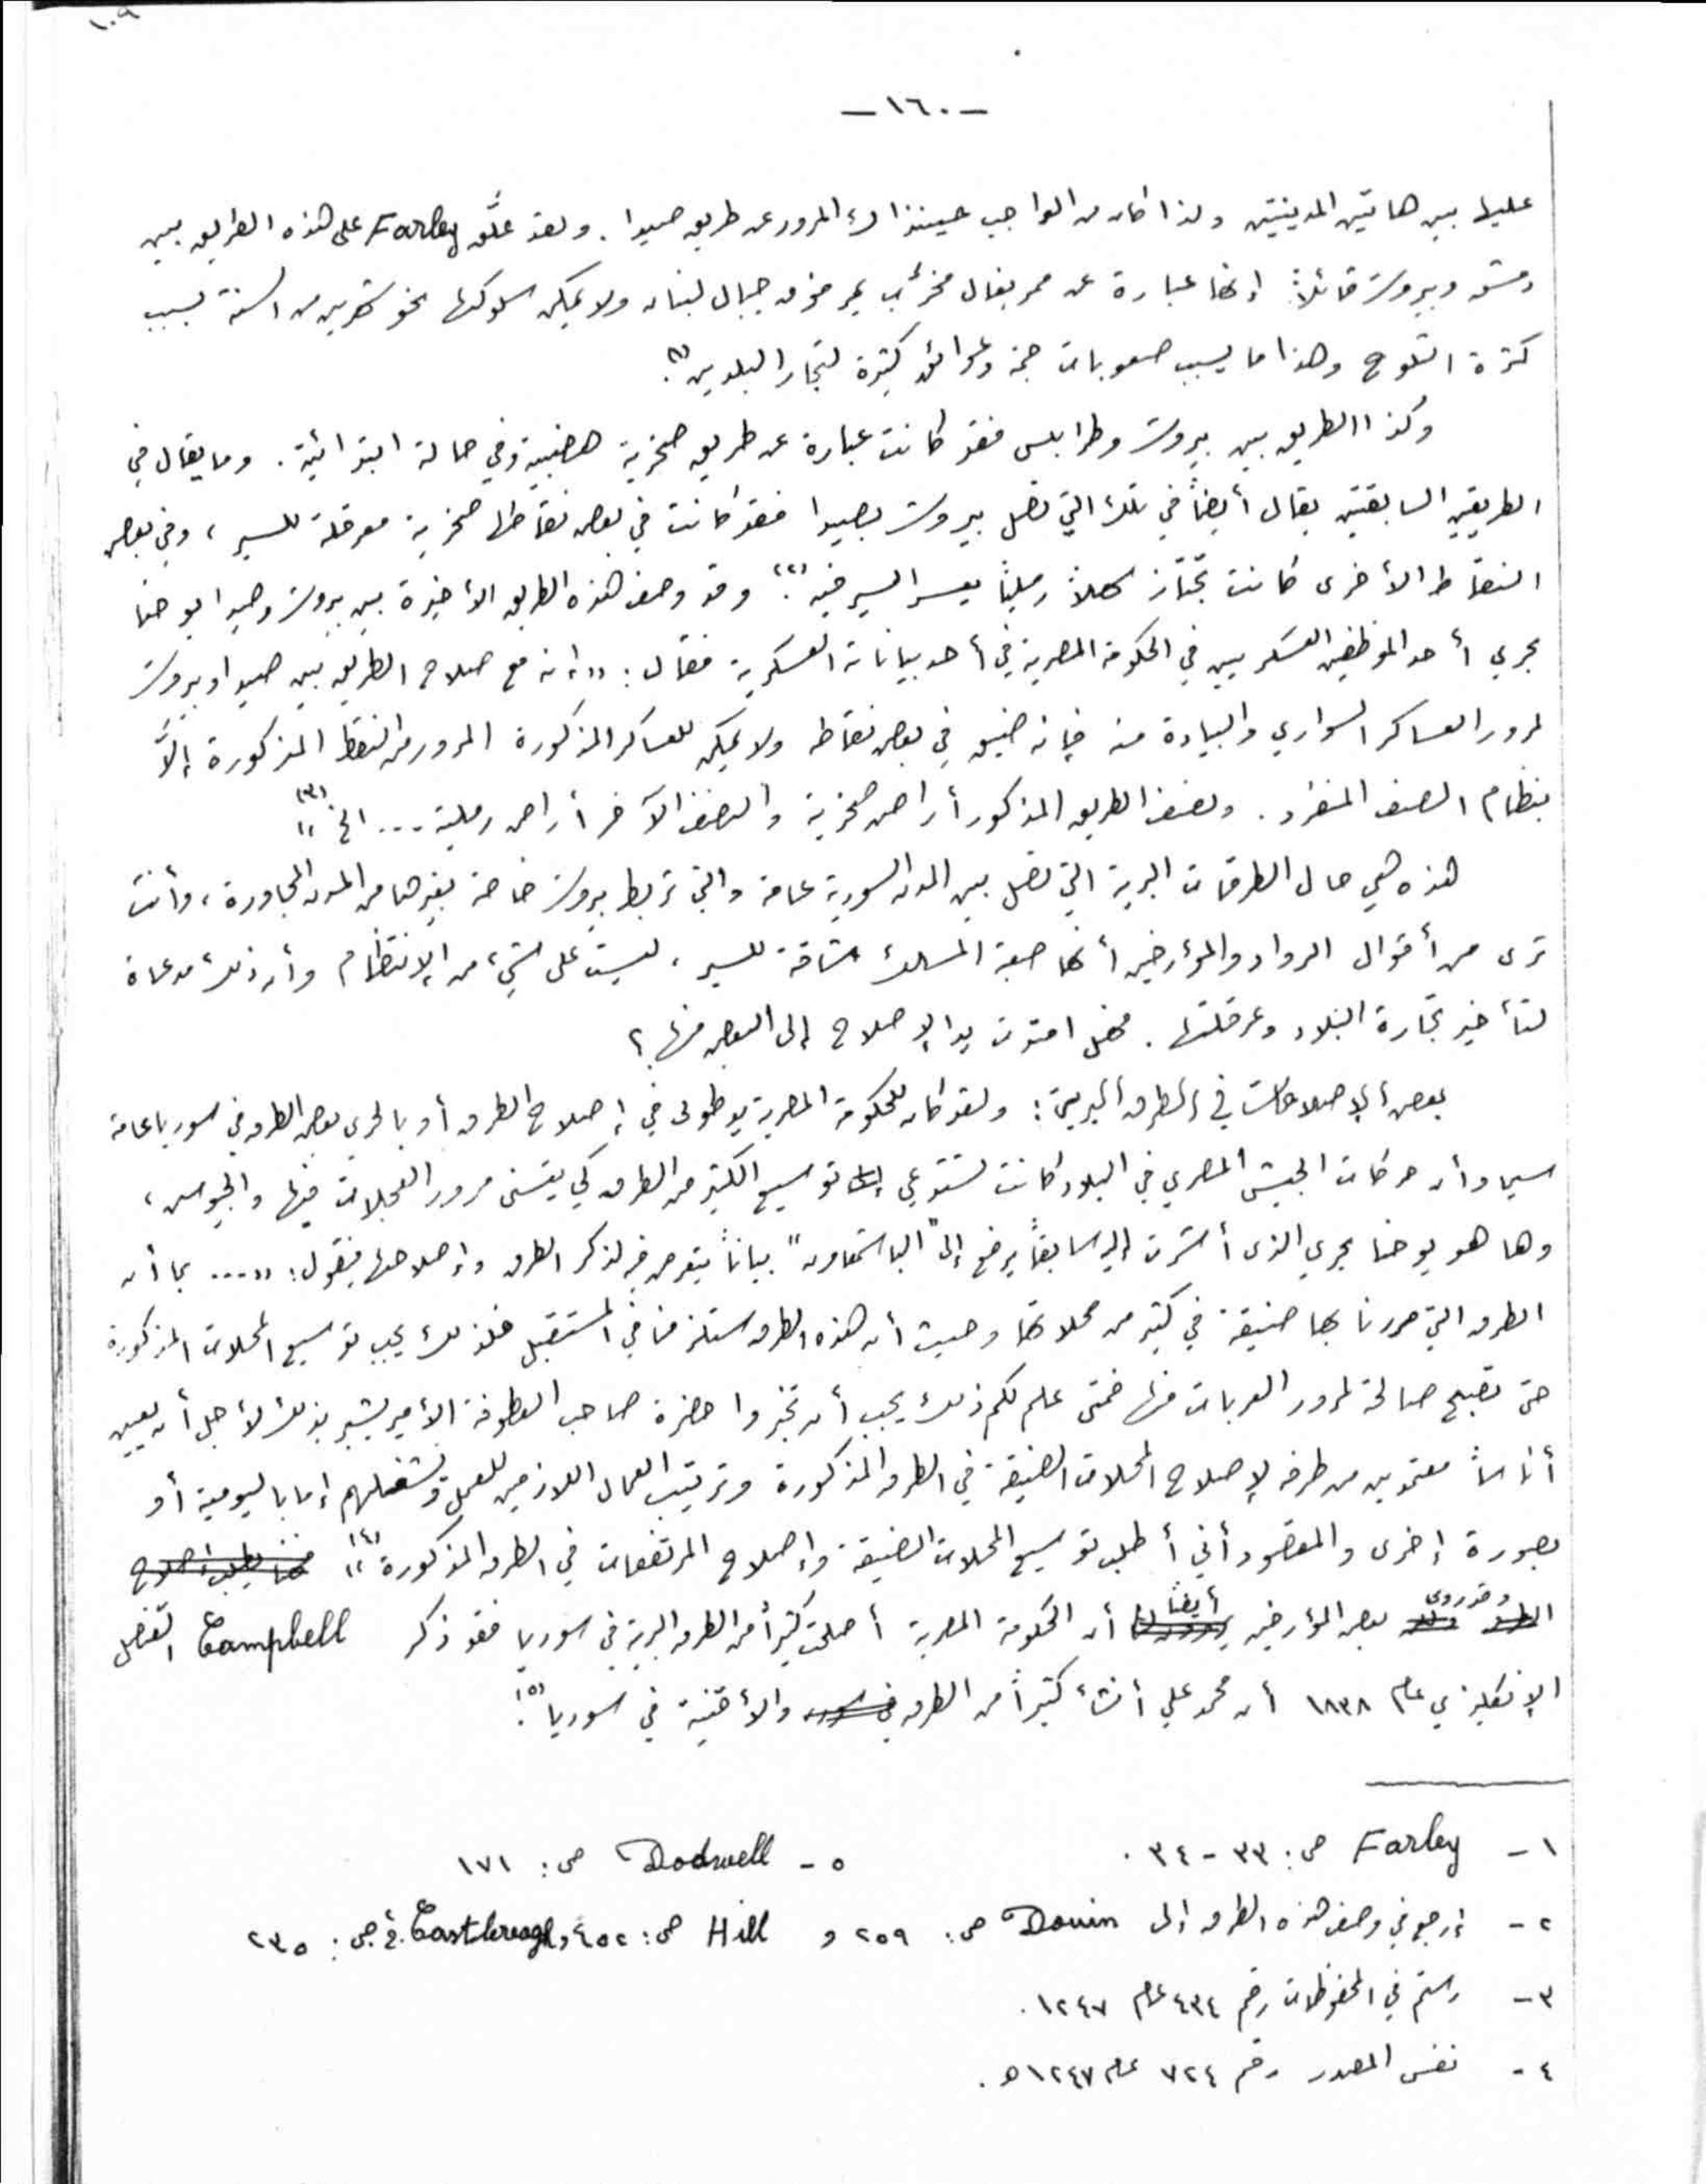 ١٠٩
-١٦٠-
عليها بين هاتين المدينتين ولذا كان من الواجب حينذاك المرور عن طريق صيدا. ولقد علَّق Farley على هذه الطريق بين
دمشق وبيروت قائلاً إنها عبارة عن ممر بغال مخرّب يمر فوق جبال لبنان ولا يمكن سلوكها نحو شهرين من السنة بسبب
كثرة الثلوج وهذا ما يسبب صعوبات جمة وعوائق كثيرة لتجار البلدين (١).
وكذا الطريق بين بيروت وطرابلس فقد كانت عبارة عن طريق صخرية هضبية وفي حالة ابتدائية. وما يقال في
الطريقين السابقتين يقال أيضاً في تلك التي تصل بيروت بصيدا فقد كانت في بعض نقاطها صخرية معرقلة للسير، وفي بعض
النقاط الأخرى كانت تجتاز سهلاً رملياً يعسر السير فيه (٢). وقد وصف هذه الطريق الأخيرة بين بيروت وصيدا يوحنا
بحري أحد الموظفين العسكريين في الحكومة المصرية في أحد بياناته العسكرية فقال: "إنه مع صلاح الطريق بين صيدا وبيروت
لمرور العساكر السواري والبيادة منه فإنه ضيق في بعض نقاطه ولا يمكن للعساكر المذكورة المرور من النقط المذكورة إلَّا
بنظام الصف المنفرد. ونصف الطريق المذكور أراضي صخرية والنصف الآخر أراضي رملية ... الخ" (٣)
هذه هي حال الطرقات البرية التي تصل بين المدن السورية عامة والتي تربط بيروت خاصة بغيرها من المدن المجاورة، وأنت
ترى من أقوال الرواد والمؤرخين أنها صعبة المسالك شاقة للسير، ليست على شيء من الإنتظام وأن ذلك مدعاة
لتأخير تجارة البلاد وعرقلتها. فهل امتدت يد الإصلاح إلى البعض منها؟
بعض الإصلاحات في الطرق البرية: ولقد كان للحكومة المصرية يد طولى في إصلاح الطرق أو بالحري بعض الطرق في سوريا عامة
سيما وأن حركات الجيش المصري في البلاد كانت تستدعي توسيع الكثير من الطرق كي يتسنى مرور العجلات فيها والجيوش،
وها هو يوحنا بحري الذي أشرت إليه سابقاً يرفع إلى "الباشمعاون" بياناً يتعرض فيه لذكر الطرق وإصلاحها فيقول: "... بما أن
الطرق التي مررنا بها ضيقة في كثير من محلاتها وحيث أن هذه الطرق ستلزمنا في المستقبل فلذلك يجب توسيع المحلات المذكورة
حتى تصبح صالحة لمرور العربات منها فمتى علم لكم ذلك يجب أن تخبروا حضرة صاحب العطوفة الأمير بشير بذلك لأجل أن يعين
أناساً معتمدين من طرفه لإصلاح المحلات الضيقة في الطرق المذكورة وترتيب العمال اللازمين للعمل وتشغيلهم إما باليومية أو
بصورة إخرى والمقصود أني أطلب توسيع المحلات الضيقة وإصلاح المرتفعات في الطرق المذكورة" (٤)
وقد روى بعض المؤرخين أيضاً أن الحكومة المصرية أصلحت كثيراً من الطرق البرية في سوريا فقد ذكر Campbell القنصل
الإنكليزي عام ١٨٣٨ أن محمد علي أنشأ كثيراً من الطرق والأقنية في سوريا (٥).
١- Farley ص: ٣٣-٣٤.
٢- إرجع في وصف هذه الطرق إلى Douin ص: ٢٥٩ و Hill ص: ٤٥٢ و Castlereagh ص: ٢٣٥
٣- رستم في المحفوظات رقم ٤٣٤ عام ١٢٤٧.
٤- نفس المصدر رقم ٧٢٤ عام ١٢٤٧ ه.
٥- Dodwell ص: ١٧١